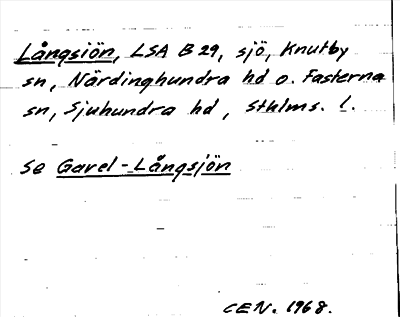 Långsjön, LSA B 29, sjö, Knutby
sn, Närdinghundra hd o. Fasterna
sn, Sjuhundra hd, Sthlms. l.
Se Gavel-Långsjön
CEN. 1968.